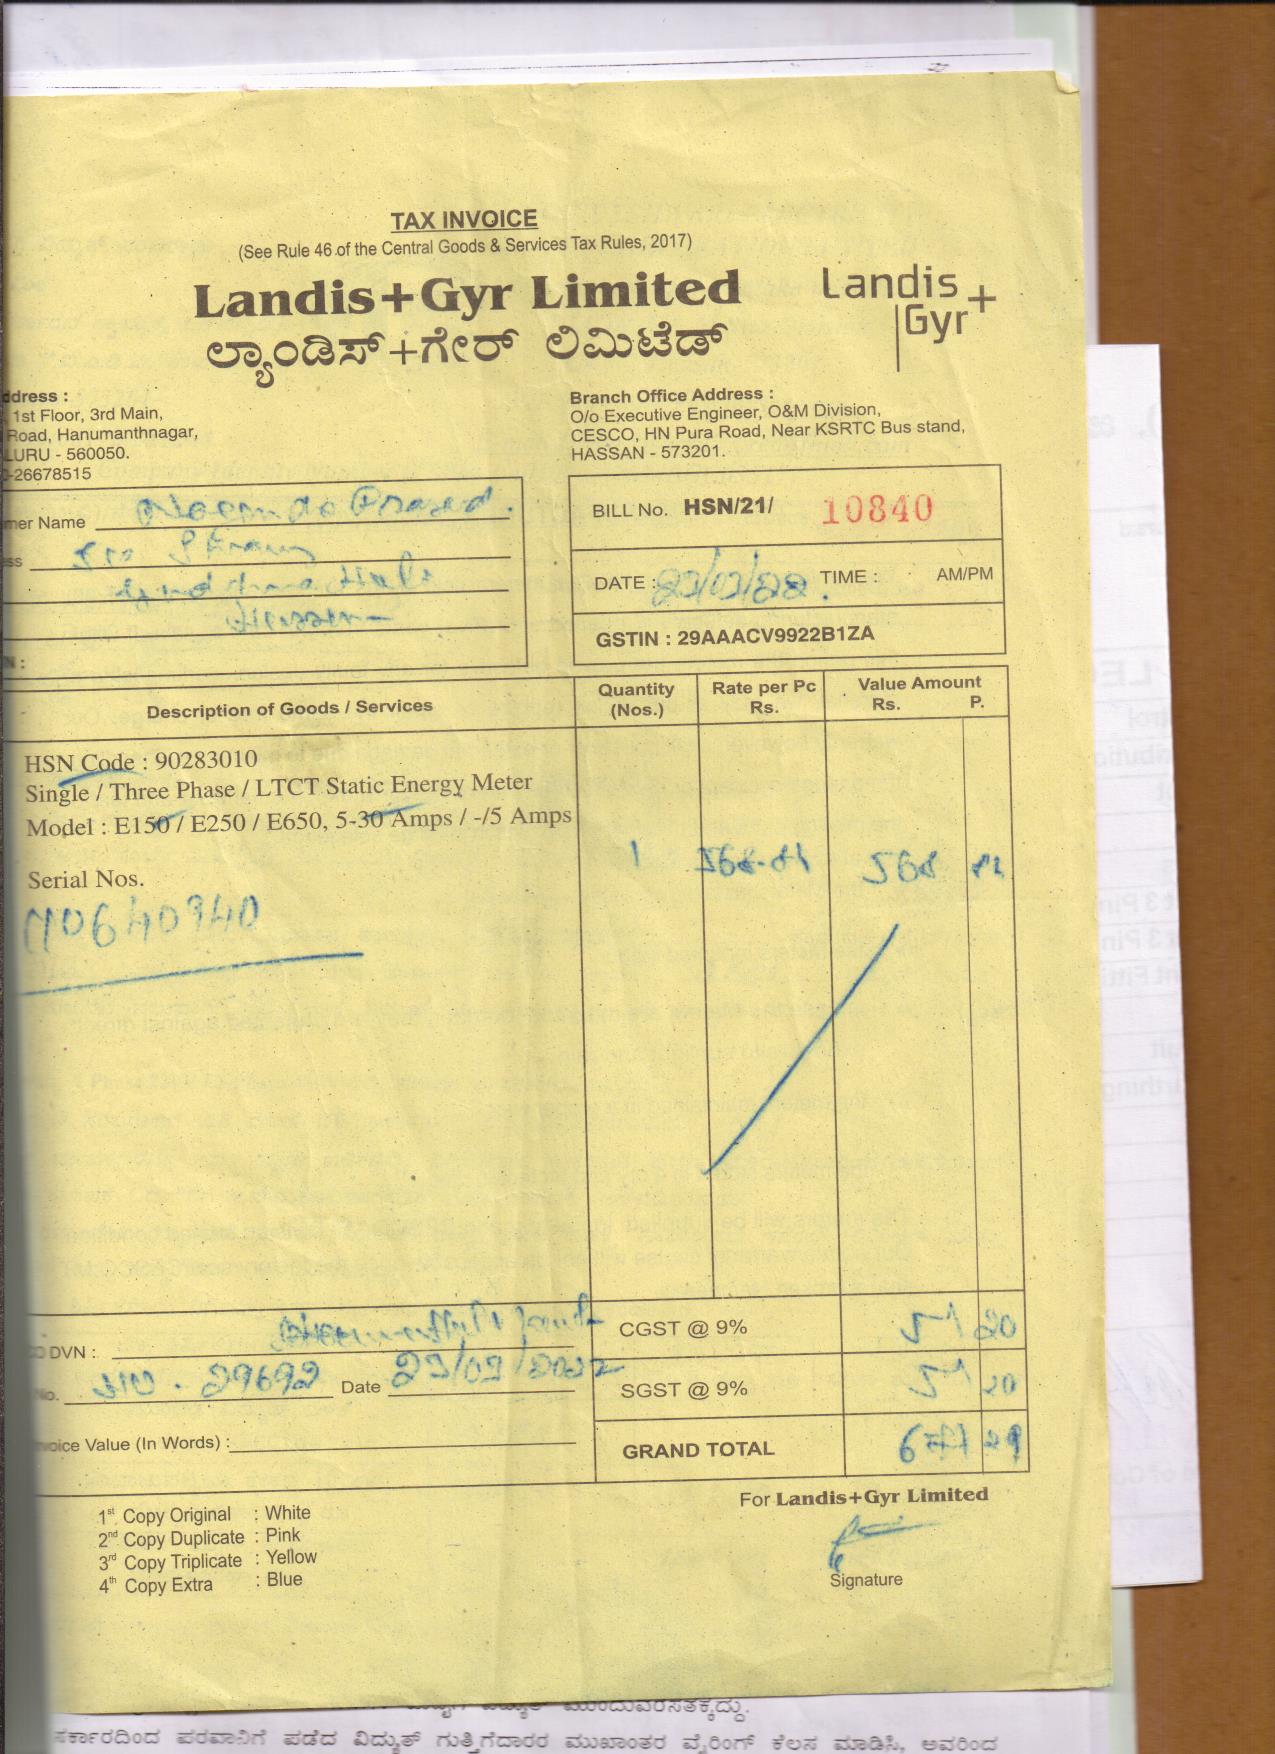 TAX INVOICE
(See Rule 46 of the Central Goods & Services Tax Rules, 2017)
Landis+Gyr Limited
ಲ್ಯಾಂಡಿಸ್+ಗೇರ್ ಲಿಮಿಟೆಡ್
Landis
Gyr+
ddress :
1st Floor, 3rd Main,
Road, Hanumanthnagar,
LURU - 560050.
-26678515
Branch Office Address :
O/o Executive Engineer, O&M Division,
CESCO, HN Pura Road, Near KSRTC Bus stand,
HASSAN - 573201.
mer Name Prasad.
ess
Hassan
N :
BILL No. HSN/21/ 10840
DATE : TIME : AM/PM
GSTIN : 29AAACV9922B1ZA
Description of Goods / Services
Quantity (Nos.)
Rate per Pc Rs.
Value Amount Rs. P.
HSN Code : 90283010
Single / Three Phase / LTCT Static Energy Meter
Model : E150 / E250 / E650, 5-30 Amps / -/5 Amps
1 568-84 568 84
Serial Nos.
DVN :
No. 29692 Date 22/02/2022
voice Value (In Words) :
CGST @ 9% 51 20
SGST @ 9% 51 20
GRAND TOTAL 671 29
1st Copy Original : White
2nd Copy Duplicate : Pink
3rd Copy Triplicate : Yellow
4th Copy Extra : Blue
For Landis+Gyr Limited
Signature
ಸರ್ಕಾರದಿಂದ ಪರವಾನಿಗೆ ಪಡೆದ ವಿದ್ಯುತ್ ಗುತ್ತಿಗೆದಾರರ ಮುಖಾಂತರ ವೈರಿಂಗ್ ಕೆಲಸ ಮಾಡಿಸಿ, ಅವರಿಂದ